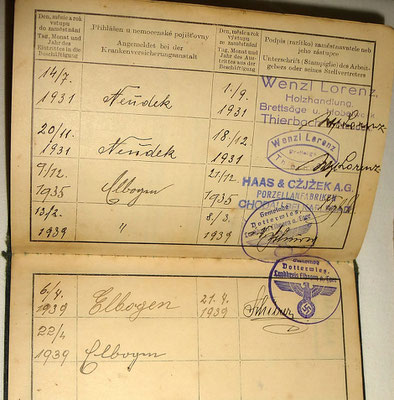 Den, měsíc a rok
vstupu
do zaměstnání
Tag, Monat und
Jahr des
Eintrittes in die
Beschäftigung
Přihlášen u nemocenské pojišťovny
Angemeldet bei der
Krankenversicherungsanstalt
Den, měsíc a rok
výstupu
ze zaměstnání
Tag, Monat und
Jahr des
Austrittes aus der
Beschäftigung
Podpis (razítko) zaměstnavatele neb
jeho zástupce
Unterschrift (Stampiglie) des Arbeit-
gebers oder seines Stellvertreters
14/7. 1931 Neudek 1./9. 1931
Wenzl Lorenz
Holzhandlung,
Brettsäge u.
Thierbach
Lorenz
20/11. 1931 Neudek 18/12 1931
Wenzl Lorenz
Lorenz
9/12. 1935 Elbogen 21/12 1935
HAAS & CŽJŽEK A.G.
PORZELLANFABRIKEN
CHODAU
13/2. 1939 " 8/3. 1939
Gemeinde
Dotterwies
6/4. 1939 Elbogen 21.4. 1939
Gemeinde
Dotterwies,
Landkreis Elbogen a. Eger
22/4 1939 Elbogen